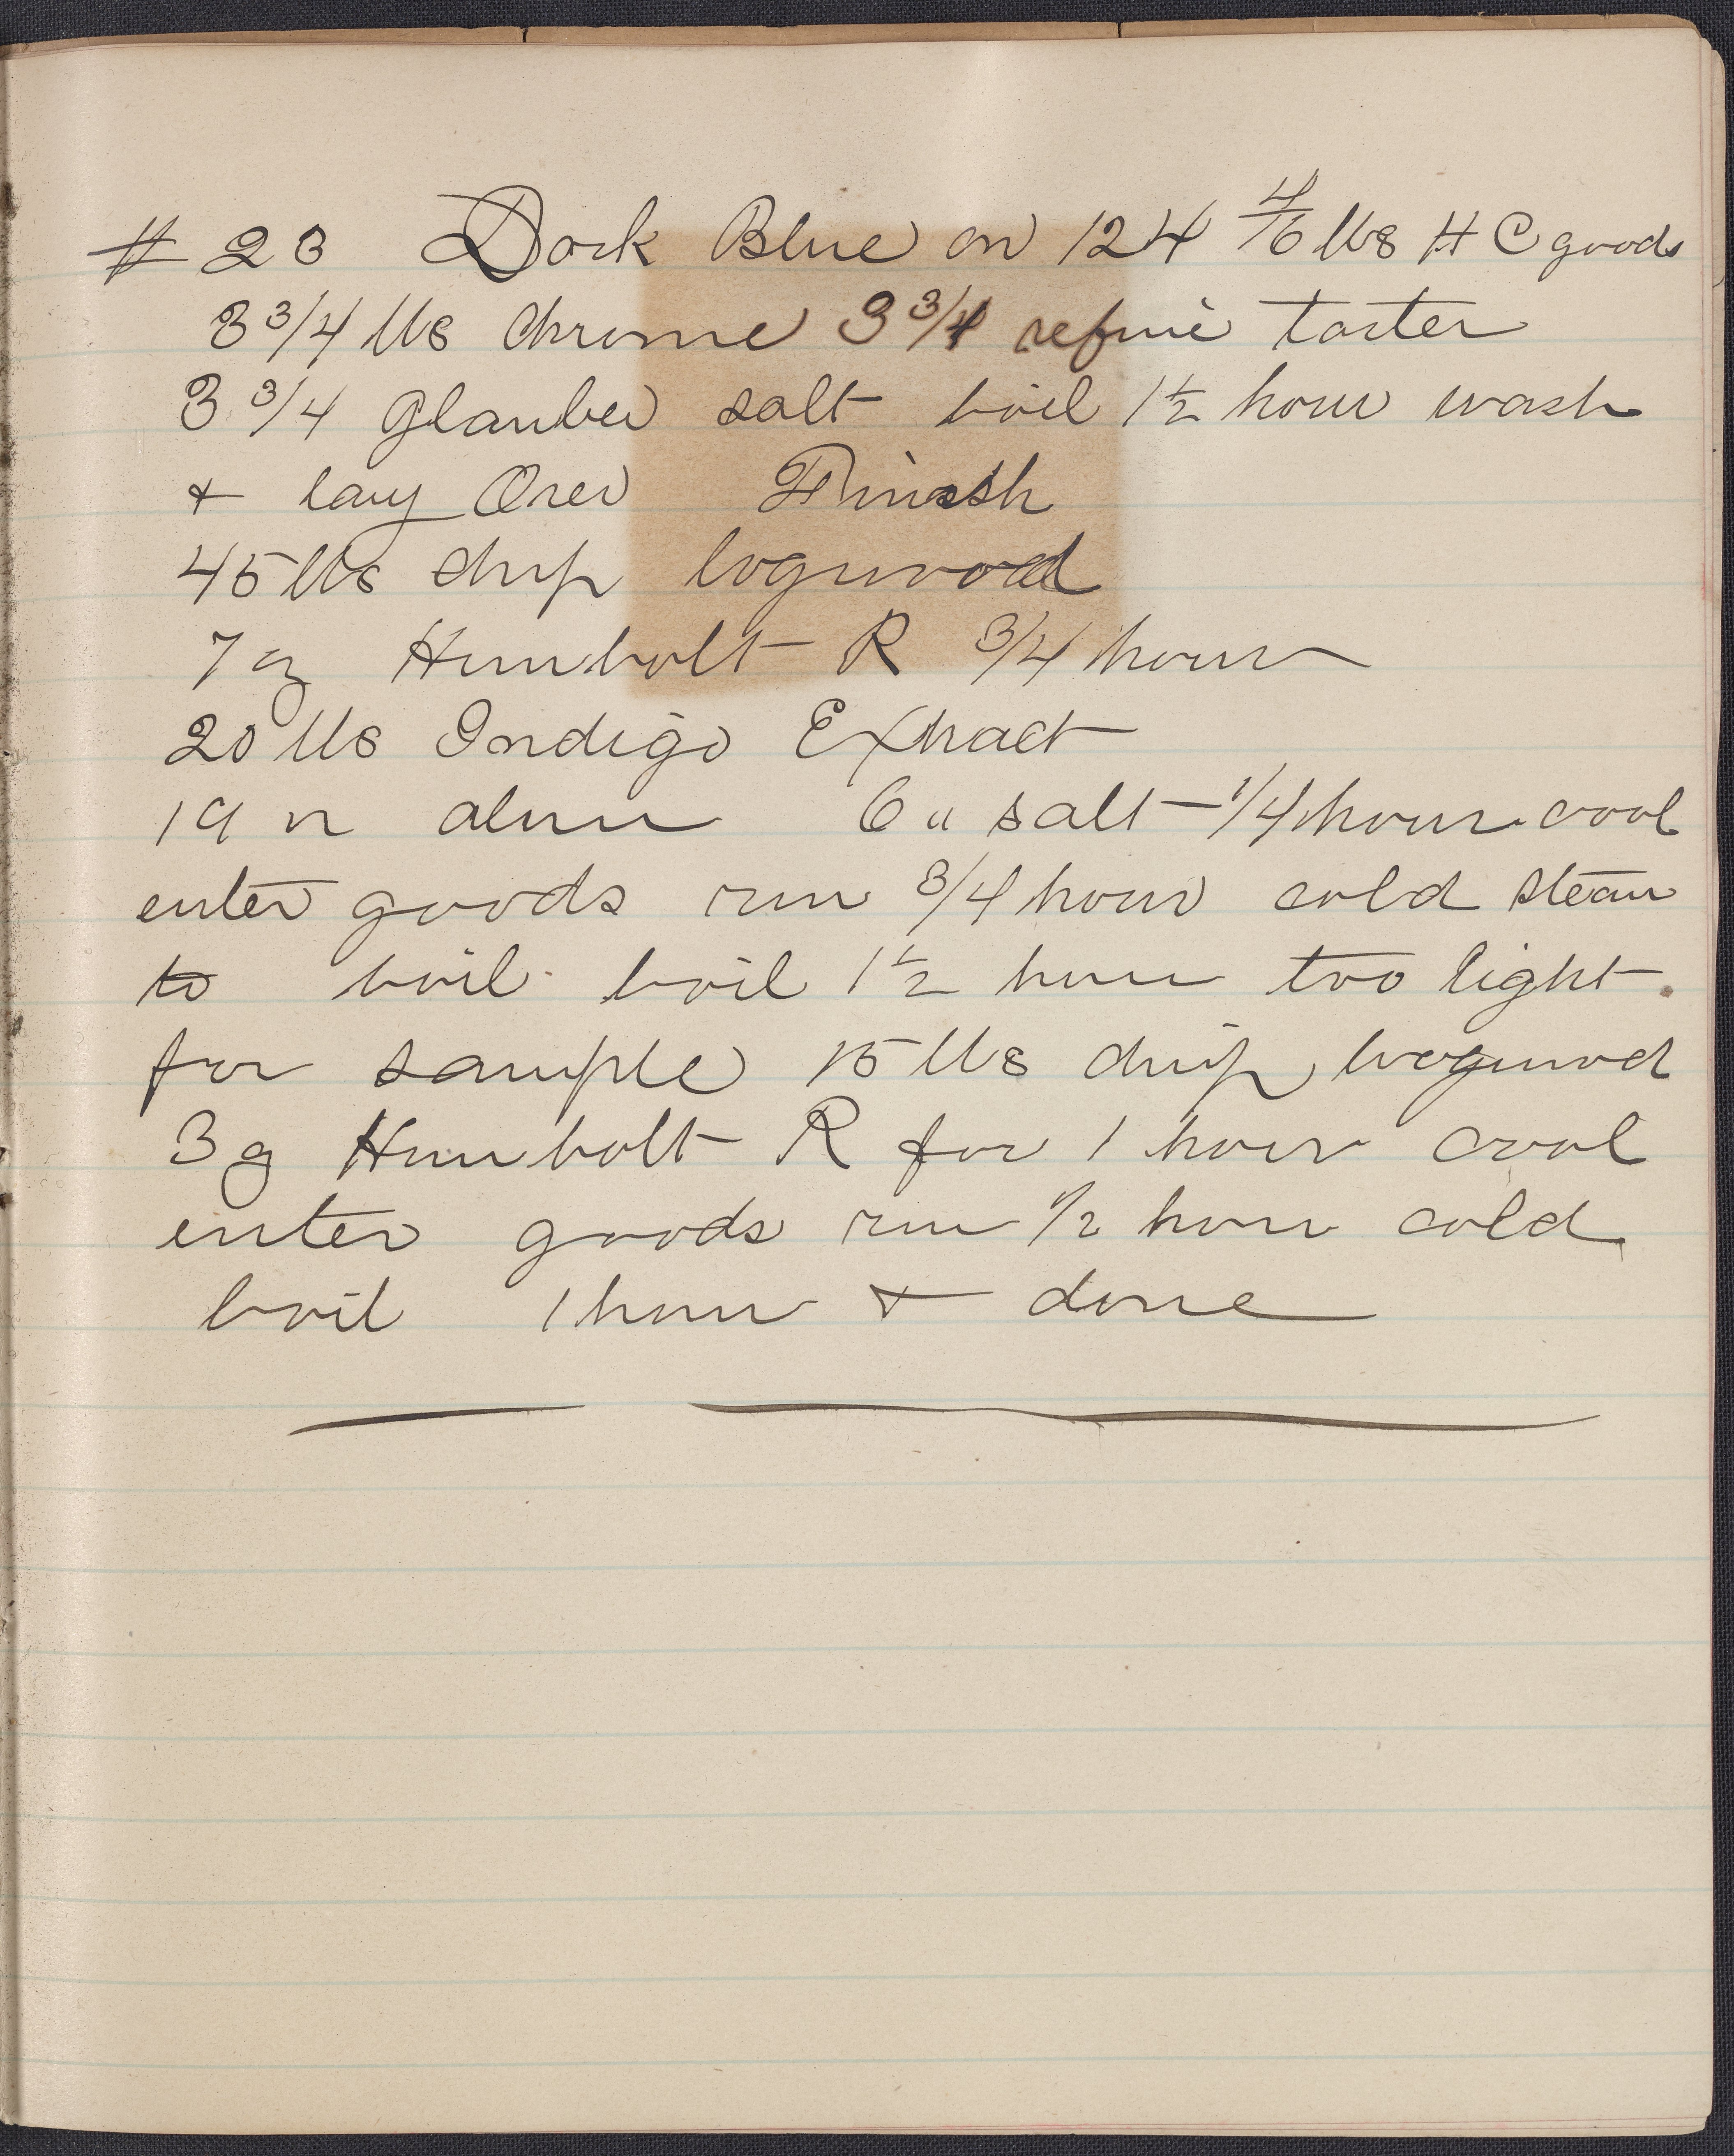 # 23 Dark Blue on 124 4/6 lbs H C goods
3 3/4 lbs Chrome 3 3/4 refine tarter
3 3/4 Glauber salt boil 1 1/2 hour wash
+ lay Over Finish
45 lbs chip logwood
7 oz Humbolt R 3/4 hour
20 lbs Indigo Extract
19 " alum 6 " salt 1/4 hour cool
enter goods run 3/4 hour cold steam
to boil boil 1 1/2 hour too light
for sample 15 lbs chip logwood
3 oz Humbolt R for 1 hour cool
enter goods run 1/2 hour cold
boil 1 hour + done